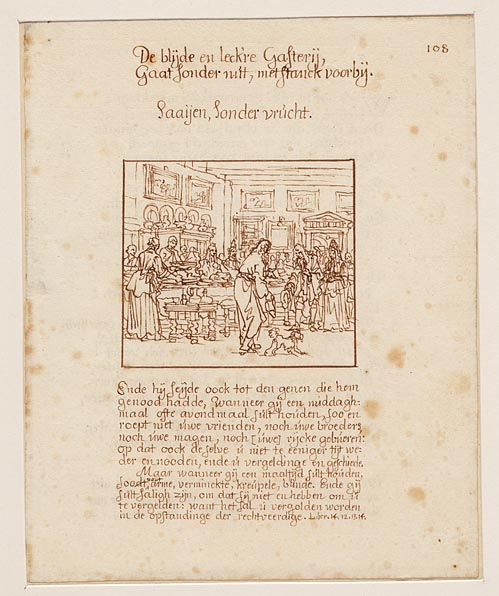 108
De blijde en leckre Gasterij,
Gaat sonder nut, met stanck voorbij.
Saaijen, sonder vrücht.
Ende hij seijde oock tot den genen die hem
genood hadde, Wanneer gij een middagh-
maal ofte avondmaal sült houden, soo en
roept niet üwe vrienden, noch üwe broeders
noch üwe magen, noch üwe rijcke gebüeren:
op dat oock deselve ü niet te eeniger tijt we-
der en nooden, ende ü vergeldinge en geschiede.
Maar wanneer gij een maaltijd sült houden,
soo noodt arme, verminckte, kreüpele, blinde. Ende gij
sült saligh zijn, om dat sij niet en hebben om ü
te vergelden: want het sal ü vergolden worden
in de opstandinge der rechtveerdige.